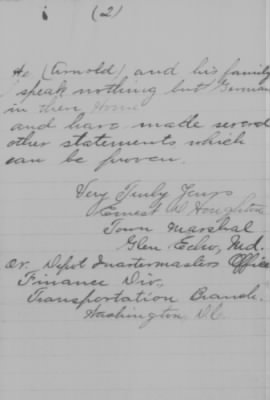 (2)
He (Arnold) and his family
speak nothing but German
in their Home
and have made several
other statements which
can be proven.
Very Truly Yours
Ernest D Houghton
Town Marshal
Glen Echo, Md.
Or. Depot Quartermasters Office
Finance Div.,
Transportation Branch.
Washington D.C.